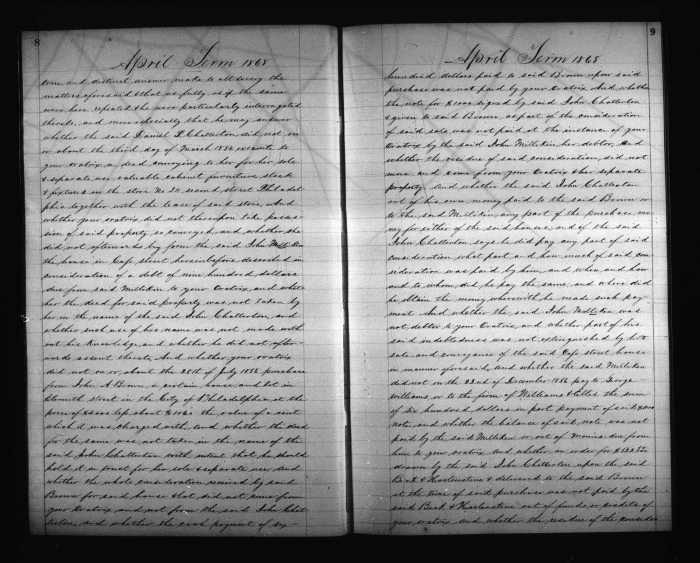 8
April Term 1868
true and distinct answer make to all every the
matters aforesaid & that as fully as if the same
were here repeated the were particularly interrogated
thereto, and more especially that he may answer
whether the said Daniel P. Chatterton did not on
or about the third day of March 1856 execute to
your oratrix a deed conveying to her for her sole
& separate use valuable cabinet furniture, stock
& fixtures in the store No 24 second street Philadel
phia together with the lease of said store. And
whether your oratrix did not thereupon take posses
sion of said property so conveyed and whether she
did not afterwards buy from the said John Milliken
the house in Cafs street hereinbefore described in
consideration of a debt of nine hundred dollars
due from said Milliken to your Oratrix, and wheth
er the deed for said property was not taken by
her in the name of the said John Chatterton, and
whether such use of his name was not made with
out his knowledge and whether he did not after-
wards assent thereto, And whether your oratrix
did not on or about the 25th of July 1856 purchase
from John A Brown a certain house and lot in
Eleventh street in the City of Philadelphia at the
price of lefs about $1062 the value of a rent
which it was charged with, and whether the deed
for the same was not taken in the name of the
said John Chatterton with intent that he should
hold it in trust for her sole & separate use, And
whether the whole consideration received by said
Brown for said house & lot did not come from
your Oratrix and not from the said John Chat
terton, and whether the cash payment of six
9
April Term 1868
hundred dollars paid to said Brown upon said
purchase was not paid by your Oratrix And whether
the note for $1000 signed by said John Chatterton
& given to said Brown as part of the consideration
of said sale was not paid at the instance of your
Oratrix by the said John Milliken her debtor, and
whether the residue of said consideration, did not
move and come from your Oratrix & her separate
property. And whether the said John Chatterton
out of his own money paid to the said Brown or
to the said Milliken any part of the purchase mo
ney for either of the said houses, and if the said
John Chatterton says he did pay any part of said
consideration what part and how much of said con
sideration was paid by him, and when, and how
and to whom did he pay the same, and where did
he obtain the money wherewith he made such pay-
ment. And whether the said John Milliken was
not debtor to your Oratrix, and whether part of his
said indebtedness was not extinguished by his
sale and conveyance of the said Cafs street house
in manner aforesaid, And whether the said Milliken
did not on the 22nd of December 1856 pay to George
Williams or to the firm of Williams & the sum
of six hundred dollars in part payment of said $1000
note, and whether the balance of said note was not
paid by the said Milliken or out of Monies due from
him to your Oratrix, And whether an order for
drawn by the said John Chatterton upon the said
Beck & Hartenstine & delivered to the said Brown
at the time of said purchase was not paid by the
said Beck & Hartenstine out of funds, or credits of
your oratrix and whether the residue of the consider